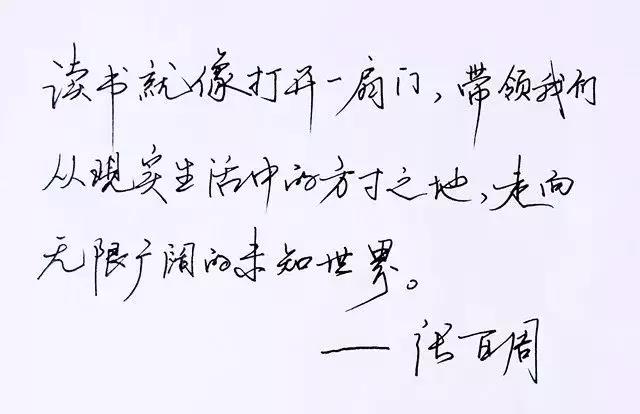 读书就像打开一扇门，带领我们
从现实生活中的方寸之地，走向
无限广阔的未知世界。
——张百周